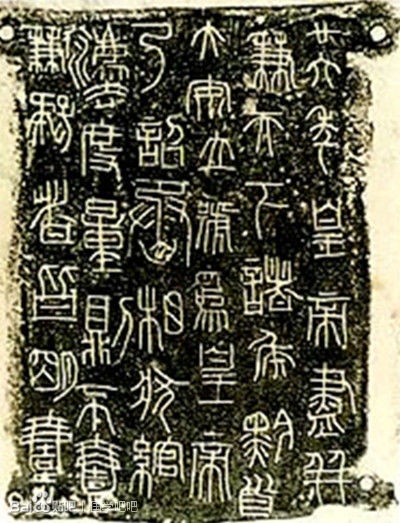 廿六年皇帝盡并
兼天下諸侯黔首
大安立號為皇帝
乃詔丞相狀綰
灋度量則不壹
歉疑者皆明壹
Bai 贴吧